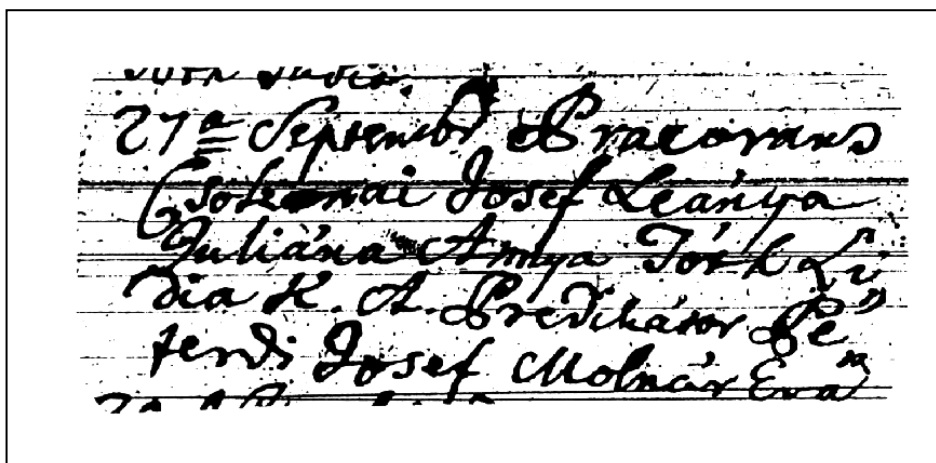 27a Septembr Pracorans
Csolnai Josef Leánya
Juliána Annya Törk Li
dia K. A. Predikátor Pe"
terdi Josef Molnár Eva